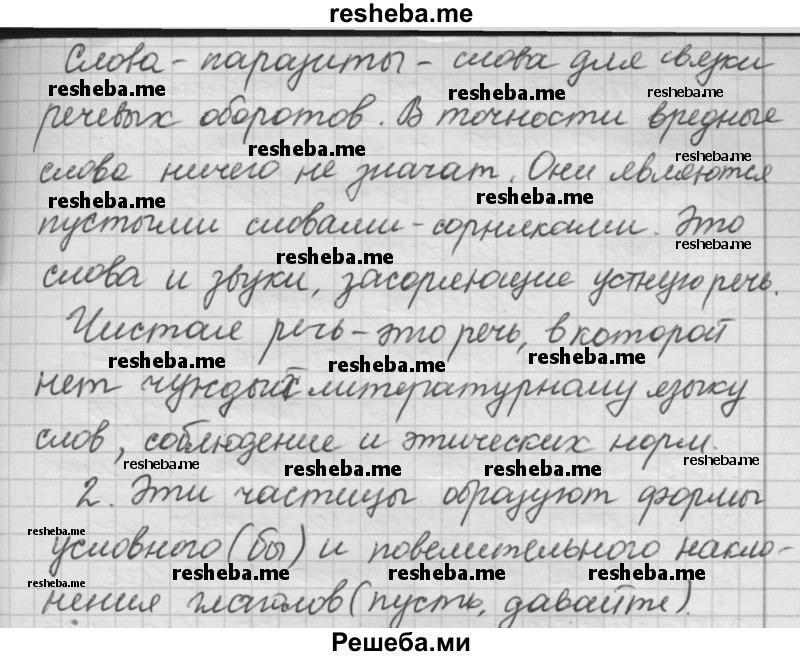 resheba.me
Слова-паразиты - слова для связки
resheba.me resheba.me resheba.me
речевых оборотов. В точности вредные
resheba.me resheba.me
слова ничего не значат. Они являются
resheba.me resheba.me
пустыми словами-сорняками. Это
resheba.me resheba.me
слова и звуки, засоряющие устную речь.
Чистая речь - это речь, в которой
resheba.me resheba.me resheba.me
нет чуждых литературному языку
слов, соблюдение и этических норм.
resheba.me resheba.me resheba.me resheba.me
2. Эти частицы образуют формы
resheba.me
условного (бы) и повелительного накло-
resheba.me resheba.me resheba.me resheba.me
нения глаголов (пусть, давайте).
Решеба.ми